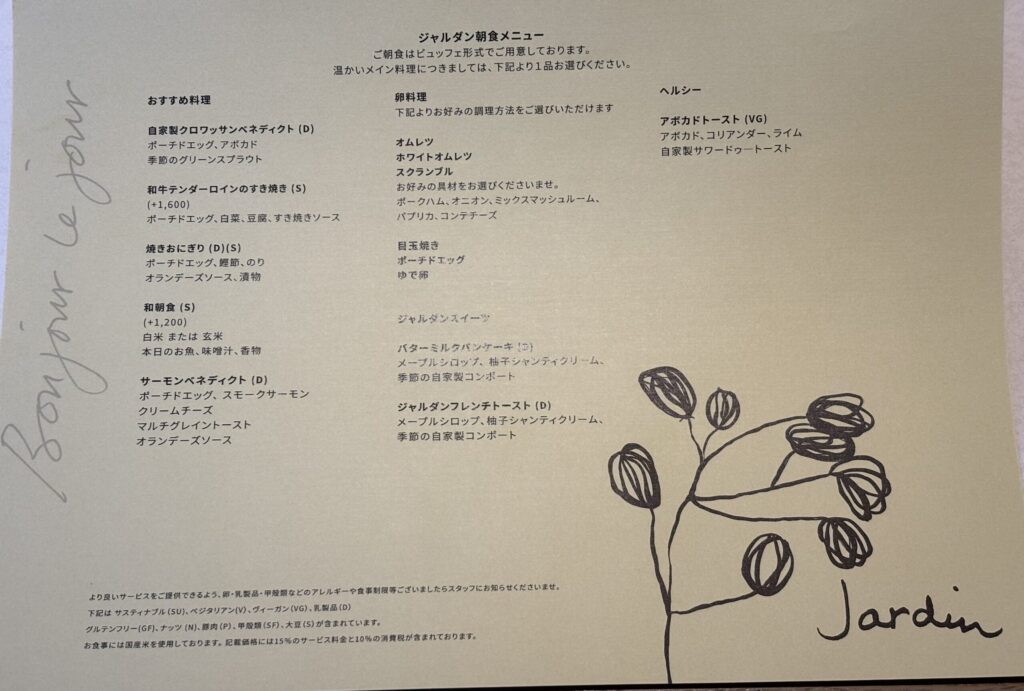 Bonjour Le jour
ジャルダン朝食メニュー
ご朝食はビュッフェ形式でご用意しております。
温かいメイン料理につきましては、下記より1品お選びください。
おすすめ料理
自家製クロワッサンベネディクト (D)
ポーチドエッグ、アボカド
季節のグリーンスプラウト
和牛テンダーロインのすき焼き (S)
(+1,600)
ポーチドエッグ、白菜、豆腐、すき焼きソース
焼きおにぎり (D)(S)
ポーチドエッグ、鰹節、のり
オランデーズソース、漬物
和朝食 (S)
(+1,200)
白米 または 玄米
本日のお魚、味噌汁、香物
サーモンベネディクト (D)
ポーチドエッグ、スモークサーモン
クリームチーズ
マルチグレイントースト
オランデーズソース
卵料理
下記よりお好みの調理方法をご選びいただけます
オムレツ
ホワイトオムレツ
スクランブル
お好みの具材をお選びくださいませ。
ポークハム、オニオン、ミックスマッシュルーム、
パプリカ、コンテチーズ
目玉焼き
ポーチドエッグ
ゆで卵
ジャルダンスイーツ
バターミルクパンケーキ (D)
メープルシロップ、柚子シャンティクリーム、
季節の自家製コンポート
ジャルダンフレンチトースト (D)
メープルシロップ、柚子シャンティクリーム、
季節の自家製コンポート
ヘルシー
アボカドトースト (VG)
アボカド、コリアンダー、ライム
自家製サワードゥートースト
より良いサービスをご提供できるよう、卵・乳製品・甲殻類などのアレルギーや食事制限等ございましたらスタッフにお知らせくださいませ。
下記は サスティナブル (SU)、ベジタリアン(V)、ヴィーガン(VG)、乳製品(D)
グルテンフリー(GF)、ナッツ (N)、豚肉 (P)、甲殻類 (SF)、大豆 (S) が含まれています。
お食事には国産米を使用しております。記載価格には15%のサービス料金と10%の消費税が含まれております。
Jardin